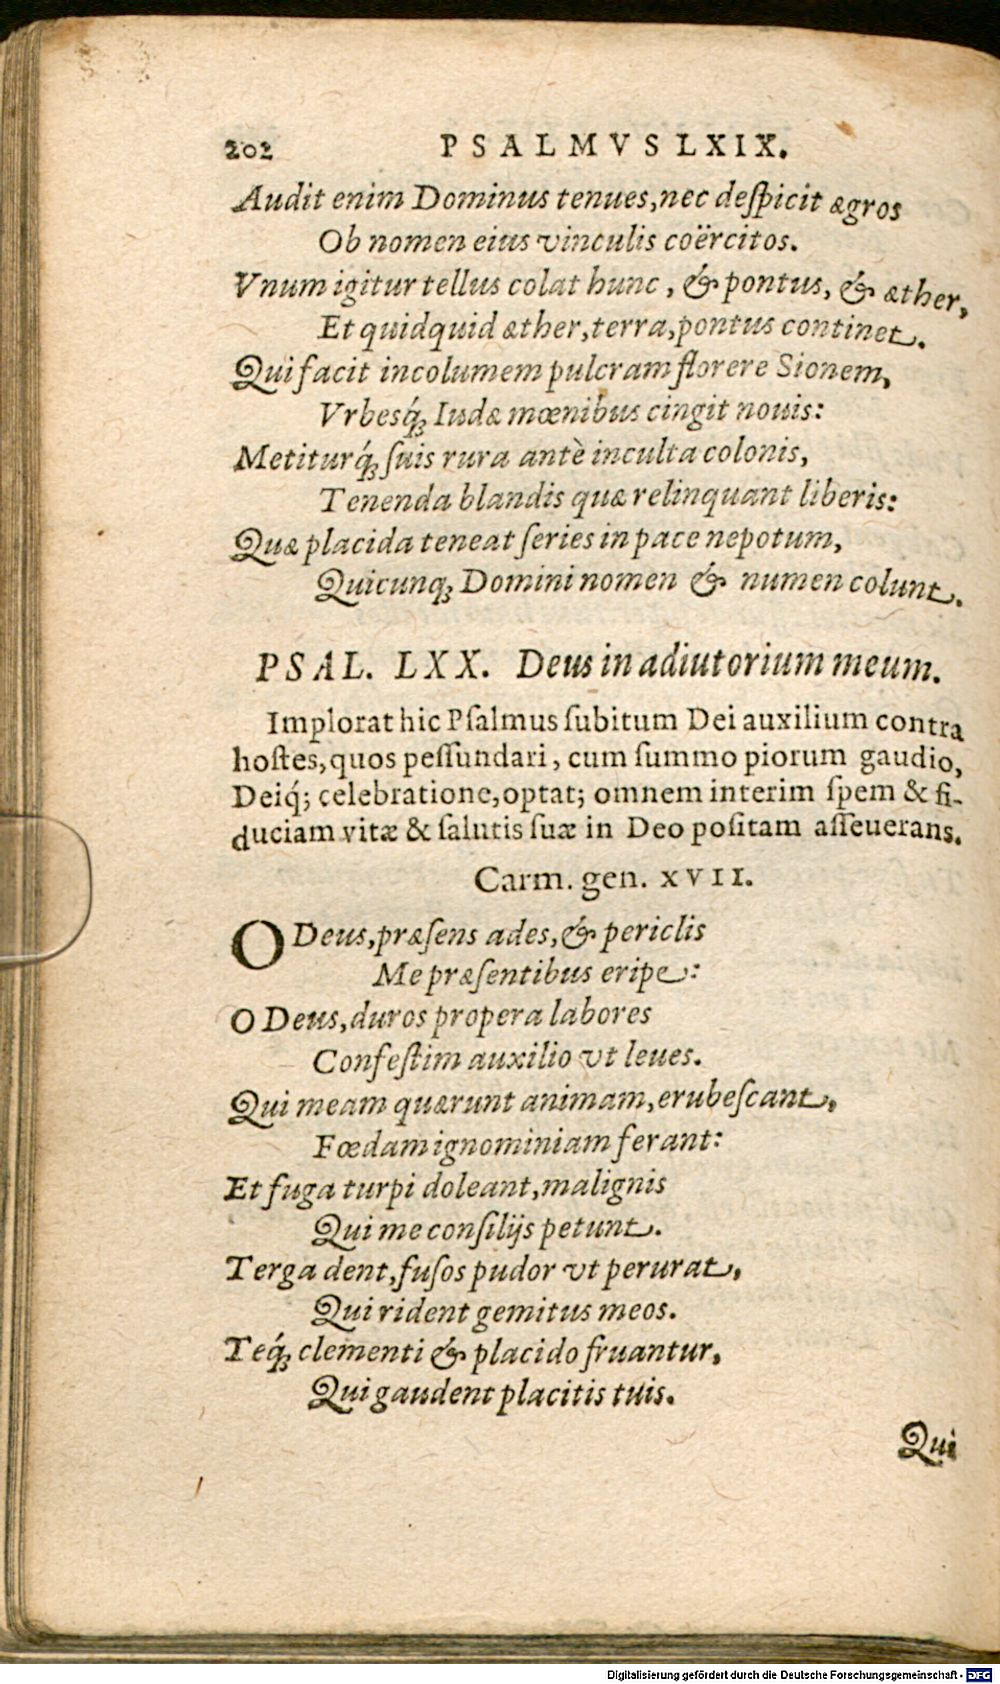 202 PSALMVS LXIX.
Audit enim Dominus tenues, nec deſpicit ægros
Ob nomen eius vinculis coërcitos.
Vnum igitur tellus colat hunc, & pontus, & æther,
Et quidquid æther, terra, pontus continet.
Qui facit incolumem pulcram florere Sionem,
Vrbesq́; Iudæ mœnibus cingit nouis:
Metiturq́; ſuis rura antè inculta colonis,
Tenenda blandis quæ relinquant liberis:
Quæ placida teneat ſeries in pace nepotum,
Quicunq; Domini nomen & numen colunt.
PSAL. LXX. Deus in adiutorium meum.
Implorat hic Pſalmus ſubitum Dei auxilium contra
hoſtes, quos peſſundari, cum ſummo piorum gaudio,
Deiq́; celebratione, optat; omnem interim ſpem & fi-
duciam vitæ & ſalutis ſuæ in Deo poſitam aſſeuerans.
Carm. gen. XVII.
O Deus, præſens ades, & periclis
Me præſentibus eripe:
O Deus, duros propera labores
Confeſtim auxilio vt leues.
Qui meam quærunt animam, erubeſcant,
Fœdam ignominiam ferant:
Et fuga turpi doleant, malignis
Qui me conſilijs petunt.
Terga dent, fuſos pudor vt perurat,
Qui rident gemitus meos.
Teq́; clementi & placido fruantur,
Qui gaudent placitis tuis.
Qui
Digitalisierung gefördert durch die Deutsche Forschungsgemeinschaft - DFG